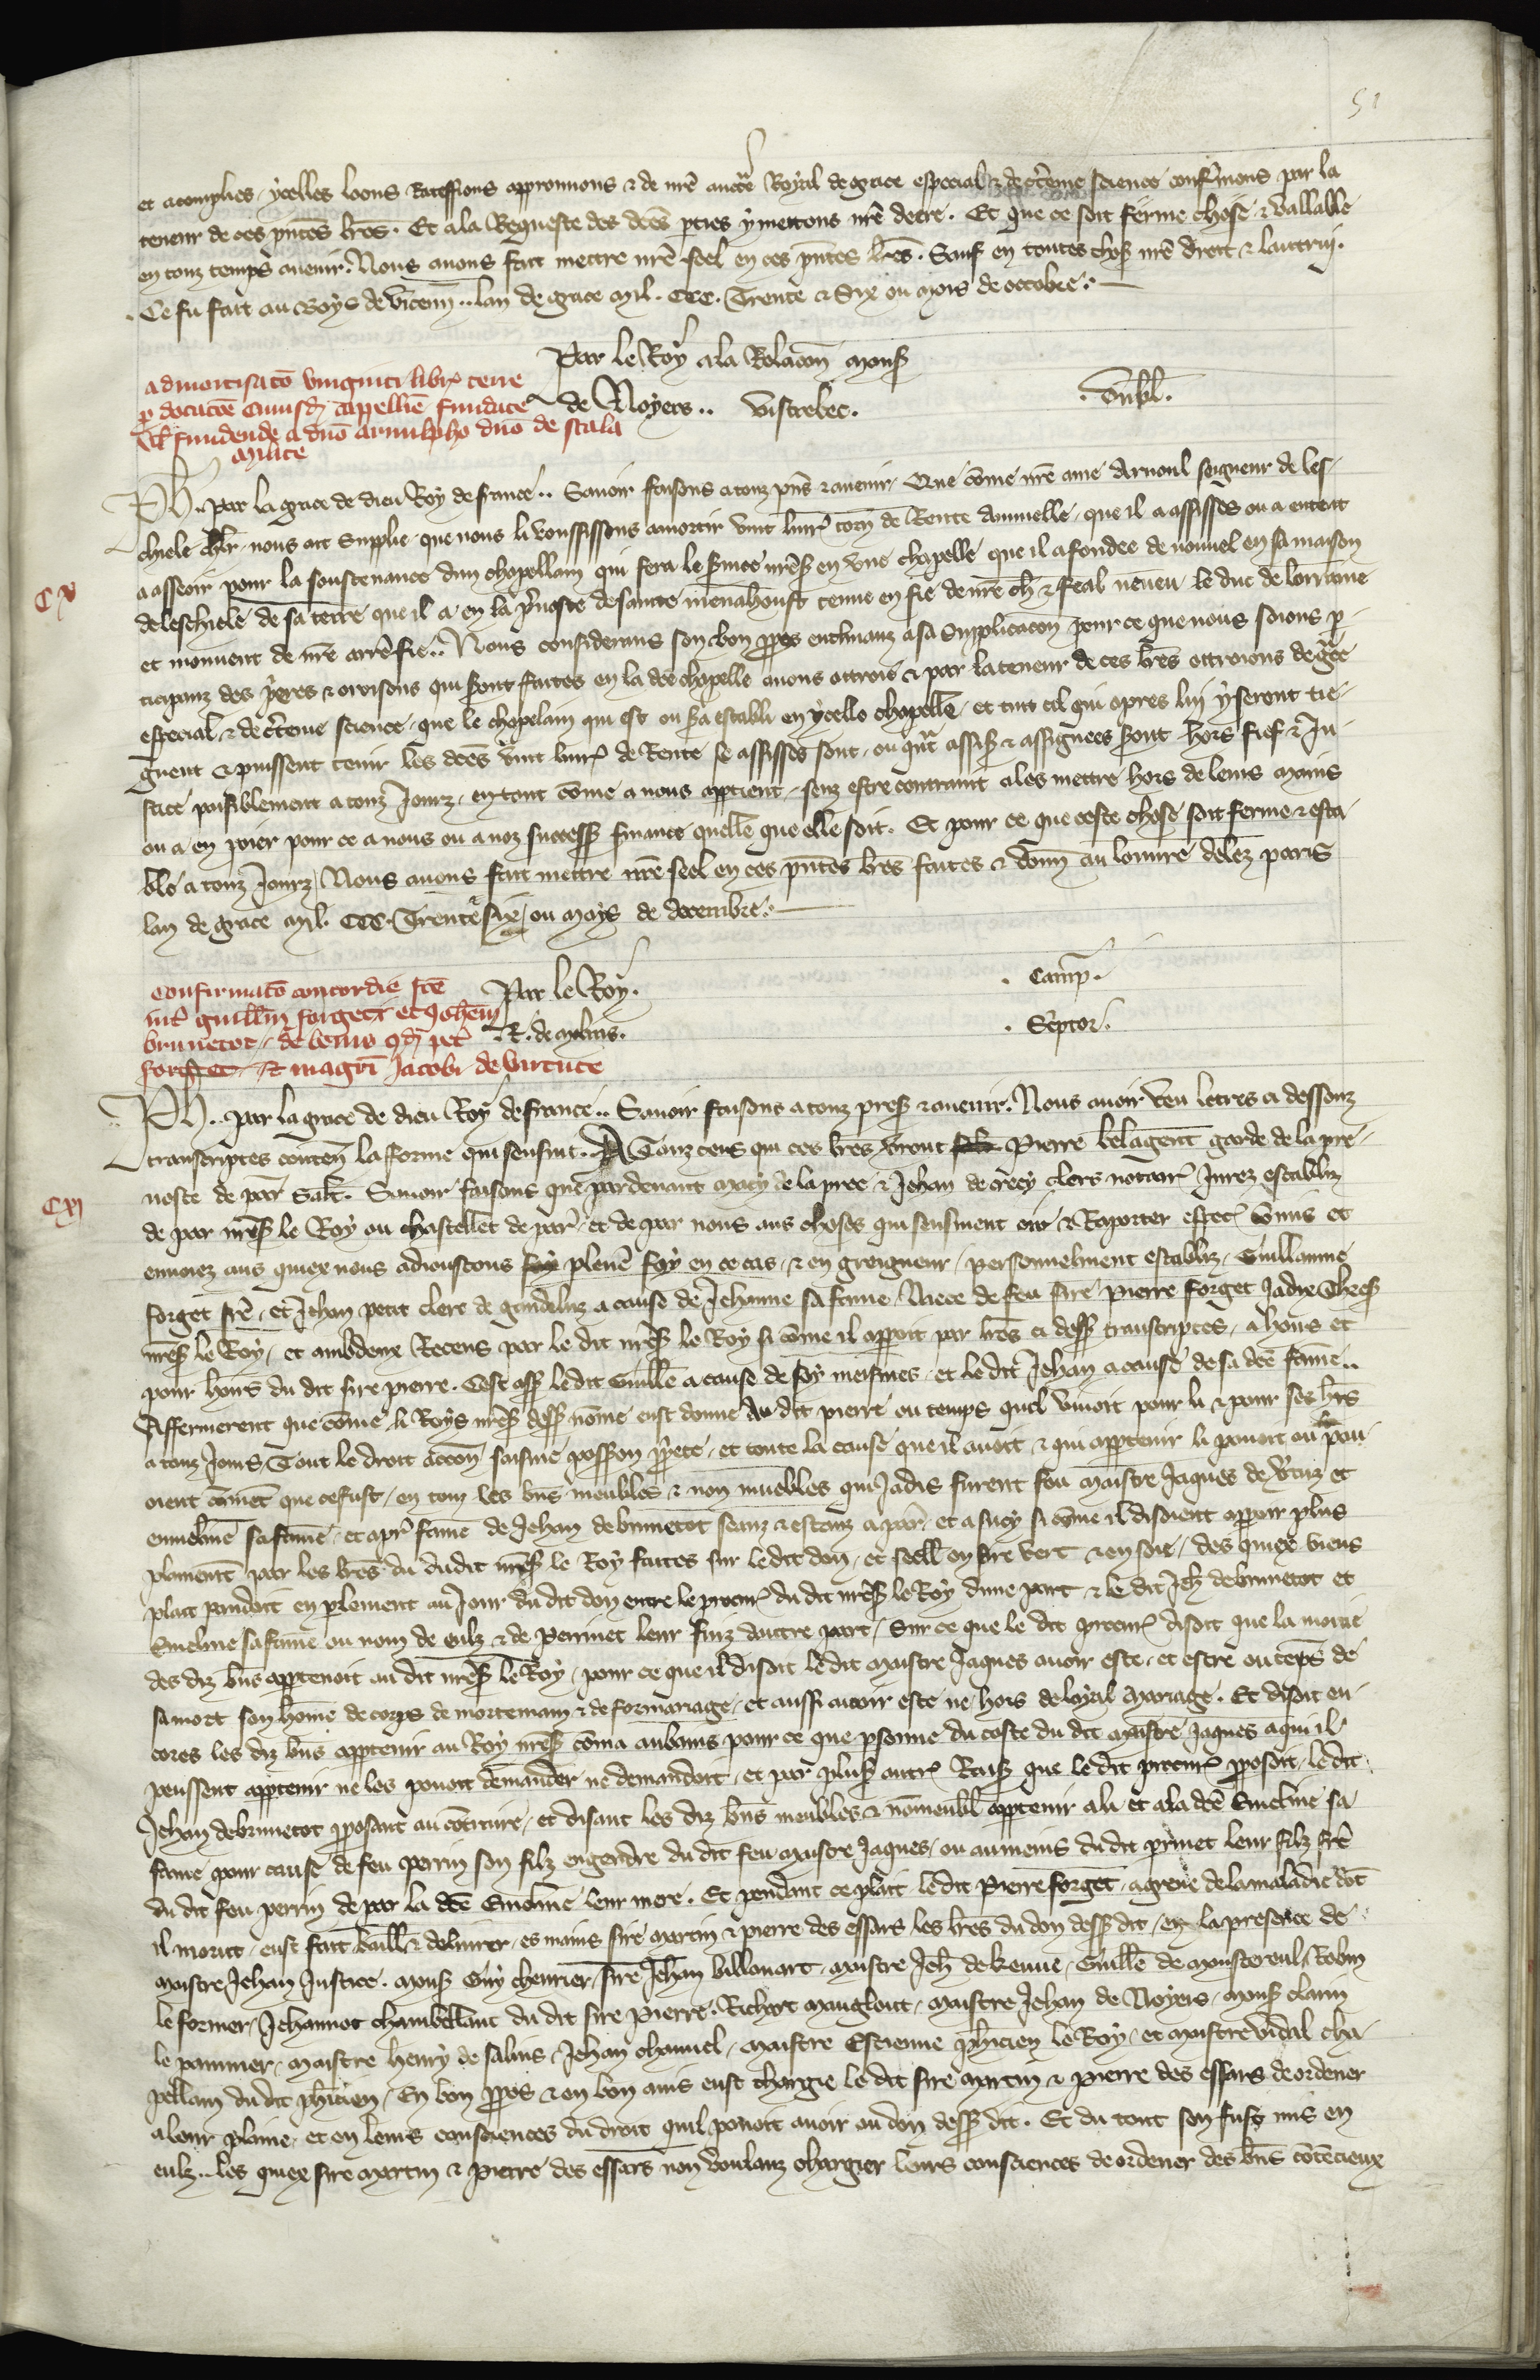 51
et acomplies, ycelles loons Ratefions approuuons & de nre auctte Royal de grace especial & de ctene science confermons par la
teneur de ces pntes lres. Et a la Requeste des dces pties y mettons nre decre. Et que ce soit ferme chose & vallable
en touz temps auenir. Nous auons fait mettre nre seel en ces pntes lres. Sauf en toutes chos nre droit & lautruj.
Ce fu fait au Boys de vicenn.. lan de grace mil. CCC. Trente & Six ou mois de octobre.
Par le Roy a la Relacon mons
de Noyers.. Vistrebec.
admortisato viuginti libr terre
p dotacoe cuiusd capellie fundate
vl fundende a dno arnulpho dno de scala
milite
CX
Ph.. par la grace de dieu Roy de france.. Sauoir faisons a touz pns & auenir. Que come nre ame Arnoul seigneur de les
chiele chlr. nous ait Supplie que nous li voussissons amortir vint liur torn de Rente Annuelle, que il a assisses ou a entent
a asseoir pour la soustenance dun chapellain qui fera le seruice nres en vne chapelle que il a fondee de nouuel en sa maison
de leschiele de sa terre que il a en la puoste de sainte menahoust tenue en fie de nre ch & feal neueu le duc de lorraine
et mouuent de nre arrefie.. Nous considerans son bon ppos enclinanz a sa Supplicacon pour ce que nous soions p
ticipanz des pieres & oroisons qui sront faites en la dce chapelle auons ottroie & par la teneur de ces lres ottroions de gce
especial & de ctene science, que le chapelain qui est ou sra establi en ycelle chapelle, et tuit cil qui apres luj y seront tie
gnent & puissent tenir les dces vint liur de Rente se assisses sont, ou qnt assis & assignees sront hors fief & Ju
stice paisiblement a touz Jourz, en tant come a nous apptient, senz estre contraint a les mettre hors de leurs mains
ou a en paier pour ce a nous ou a noz success finance quelle que elle soit. Et pour ce que ceste chose soit ferme & esta
ble a touz Jourz, Nous auons fait mettre nre seel en ces pntes lres faites & donn au louure delez paris
lan de grace mil. CCC. Trente & six, ou moys de decembre.
confirmato concordie fce
int guillm forgeti et Johem
brunetot, de bonis qd pet
forget & magri Jacobi de virtute
Par le Roy.
R. de molins.
Camp.
Sc̾ptor.
CXI
Ph.. par la grace de dieu Roy de france.. Sauoir faisons a touz pres & auenir. Nous auoir veu lettres ci dessouz
transcriptes conten la forme qui sensuit. A Touz ceus qui ces lres verront Pierre belagent garde de la pre
uoste de par Salt. Sauoir faisons que pardeuant macy de la pree & Jehan de crecy clers notair Jurez establiz
de par nres le Roy ou chastellet de par, et de par nous aus choses qui sensiuent oir & Raporter espec comis et
enuoiez aus quiex nous adioustons plene foy en ce cas, & en greigneur, personnelment establiz, Guillaume
forget fre, et Jehan petit clerc de gandeluz a cause de Jehanne sa fame, Niece de feu sire Pierre forget Jadis Thres
nres le Roy, et ambdeux Receus par le dit nres le Roy si come il appoit par lres ci dess transcriptes, a hoirs et
pour hoirs du dit sire pierre. Cest ass le dit Guille a cause de soy meismes, et le dit Jehan a cause de sa dce fame..
Affermerent que come li Roys nres dess nome eust donne Au dit pierre ou temps quel viuoit pour li & pour ses hrs
a touz Jours, Tout le droit accon saisine possson ppete, et toute la cause que il auoit & qui apptenir li pouoit ou pou
oient coment que ce fust, en touz les bns meubles & non muebles qui Jadis furent feu maistre Jaques de vtuz et
emmeline sa fame, et apr fame de Jehan de brunetot seanz & estanz a par, et a sucy si come il disoient appoir plus
plainemt par les lres du dudit nres le Roy faites sur le dit don, et seell en sire vert & en soie, des quiex biens
plait pendoit en plement au Jour du dit don entre le procur du dit nres le Roy dune part & le dit Jeh de brunetot et
Emeline sa fame ou nom de eulz & de perrinet leur filz dautre part, Sur ce que le dit procur disoit que la moitie
des diz bns apptenoit au dit nres le Roy, pour ce que il disoit le dit maistre Jaques auoir este, et estre ou teps de
sa mort son home de corps de mortemain & de formariage, et aussi auoir este ne hors de loyal mariage. Et disoit en
cores les diz bns apptenir au Roy nres coma aubains pour ce que psonne du coste du dit maistre Jaques a qui il
peussent apptenir ne les pouoit demander ne demandoit, et par plus autr Rais que le dit procur pposoit, le dit
Jehan de brunetot pposant au cotraire, et disant les diz bns meubles & nomeubl apptenir a li et a la dce Emeline sa
fame pour cause de feu perrin son filz engendre du dit feu maistre Jaques, ou au meins du dit prinet leur filz fre
du dit feu perrin de par la dce Emeline leur mere. Et pendant ce plait le dit Pierre forget, agreue de la maladie dot
il morut, eust fait baill & deliurer, es mains sire martin & pierre des essars les lres du don dess dit, en la presence de
maistre Jehan Justice. mons Guy cheurier, sire Jehan billouart, maistre Jeh de kenue, Guille de monstereul, Robin
le former, Jehannot chambellant du dit sire Pierre, Richart mauglout, maistre Jehan de Noyers, mons clarin
le paumier, maistre henry de salins, Jehan chauuel, maistre Estienne phicien le Roy, et maistre vidal cha
pellain du dit phicien, En bon ppos & en bon auis eust chargie le dit sire martin & pierre des essars de ordener
a leur plaine, et en leurs consciences du droit quil pouoit auoir ou don dess dit. Et du tout sen fust mis en
eulz.. les quiex sire martin & pierre des essars non voulanz chargier leurs consciences de ordener des bns cotecieux